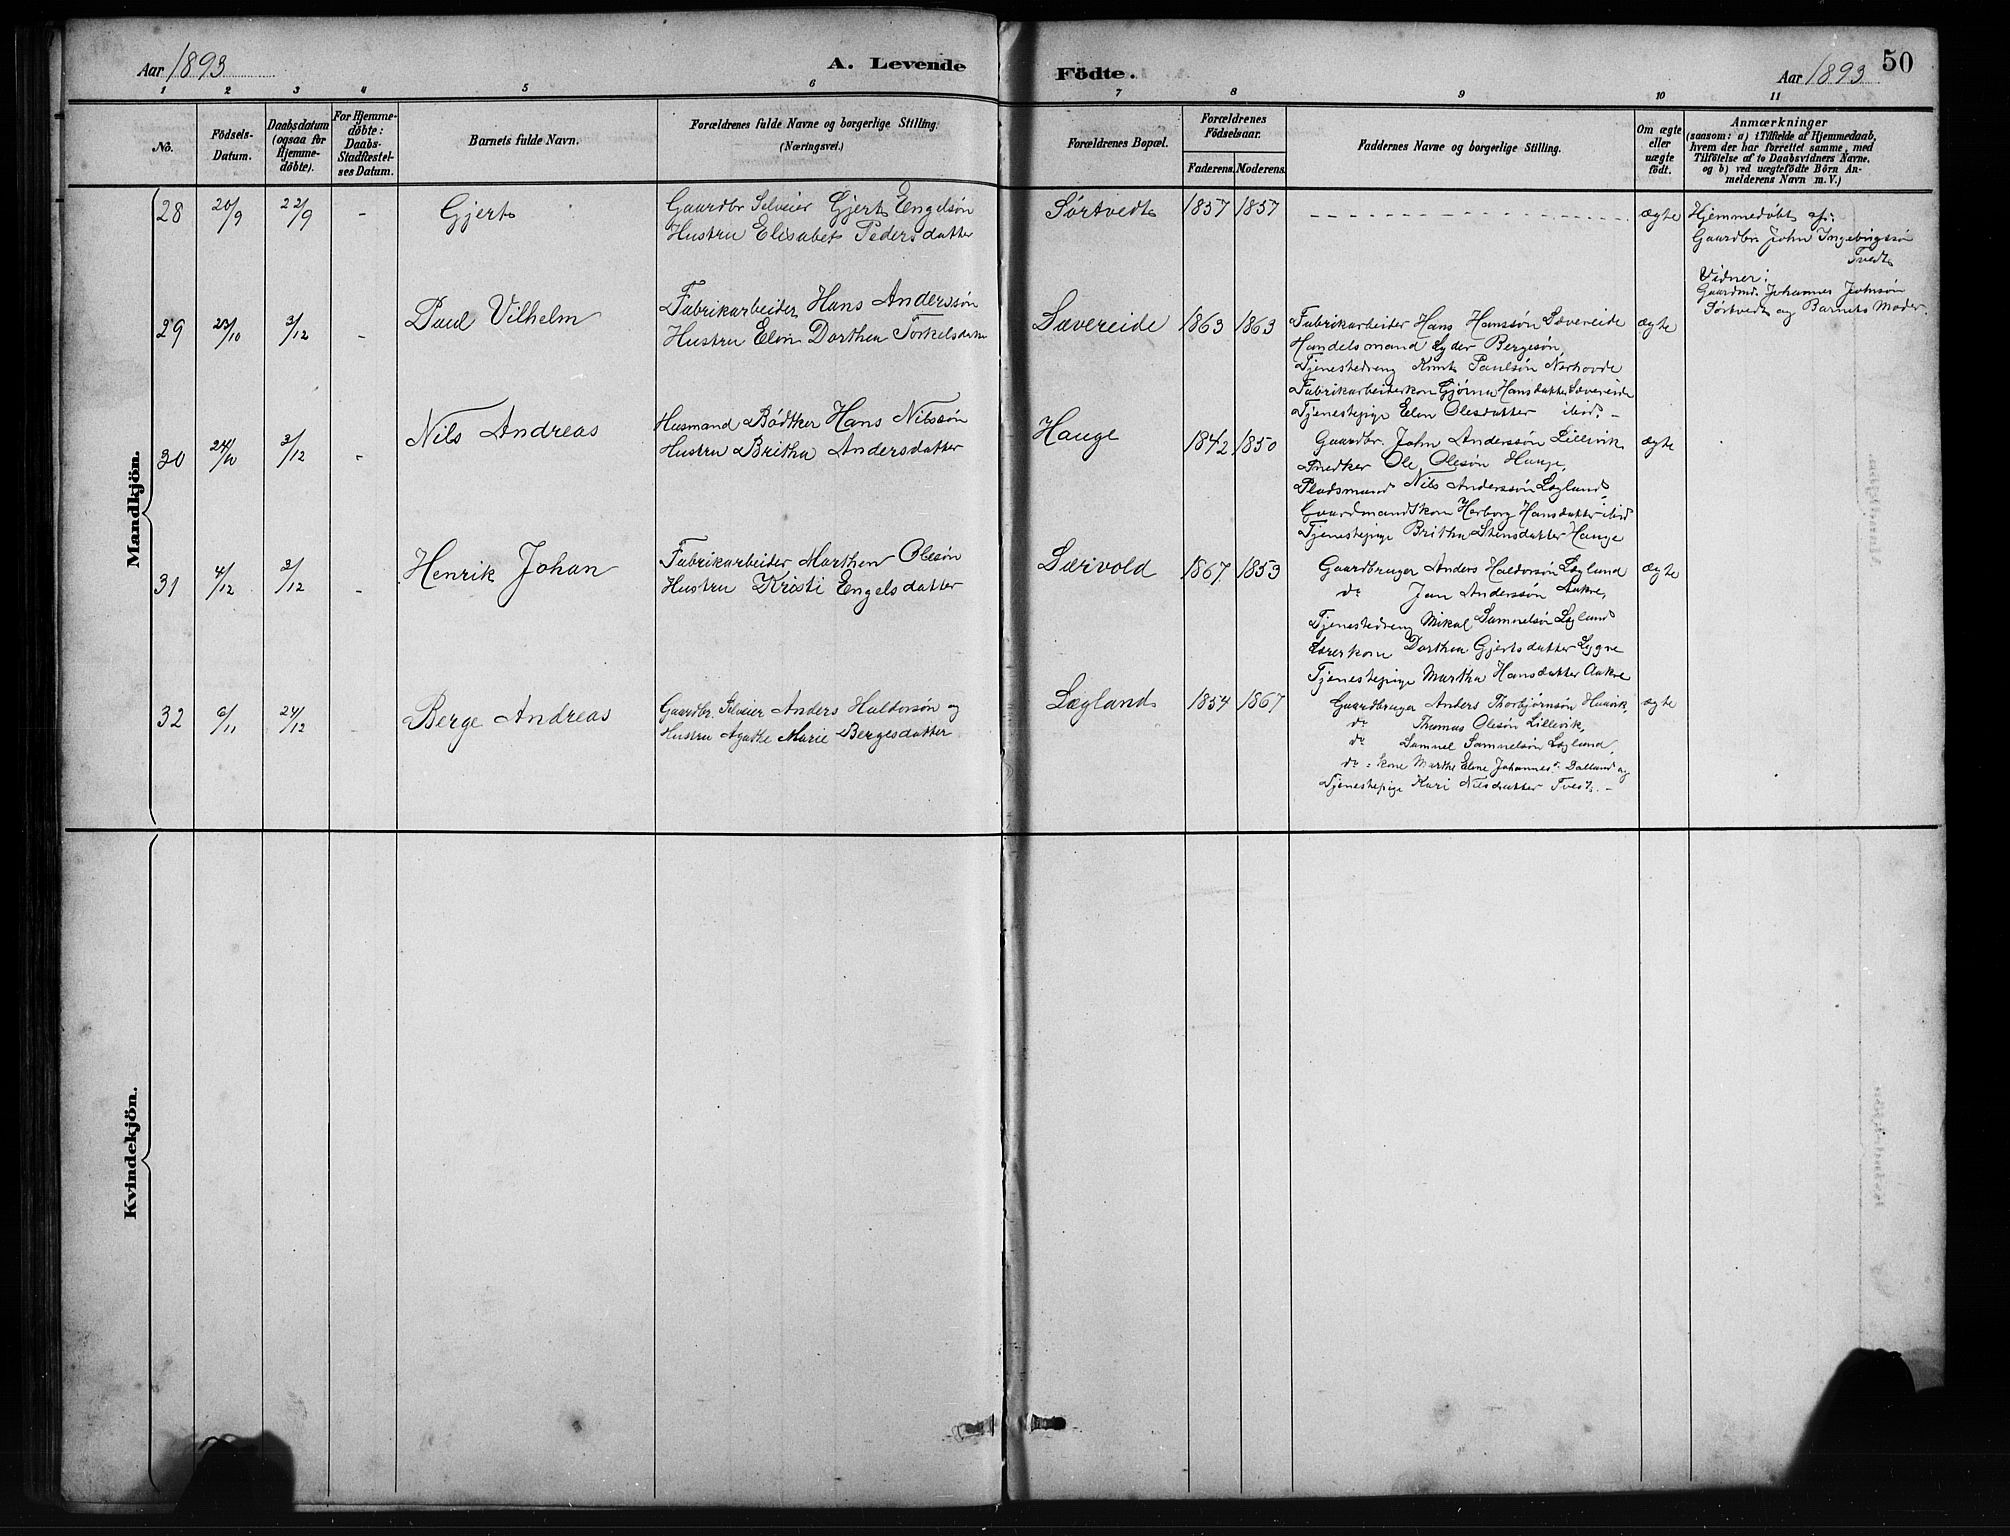 Aar 1893
A. Levende
Födte.
Aar 1893
50
1 2 3 4 5 6 7 8 9 10 11
No.
Födsels-
Datum.
Daabsdatum
(ogsaa for
Hjemme-
döbte).
For Hjemme-
döbte:
Daabs-
Stadfæstel-
ses Datum.
Barnets fulde Navn.
Forældrenes fulde Navne og borgerlige Stilling.
(Næringsvei.)
Forældrenes Bopæl.
Forældrenes
Födselsaar.
Faderens. Moderens.
Faddernes Navne og borgerlige Stilling.
Om ægte
eller
uægte
födt.
Anmærkninger
(saasom: a) i Tilfælde af Hjemmedaab,
hvem der har forrettet samme, med
Tilföielse af to Daabsvidners Navne,
og b) ved uægtefödte Börn An-
melderens Navn m. V.)
Mandkjön.
28 20/9 22/9 - Gjert
Gaardbr Selveier Gjert Engelsøn
Hustru Elisabet Pedersdatter
Sørtvedt 1857 1857
ægte
Hjemmedøbt af:
Gaardbr John Ingebrigtsøn
Tvedt
Vidner:
Gaardmd. Johannes Johnsøn
Sørtvedt og Barnets Moder.
29 23/10 3/12 - Paul Vilhelm
Fabrikarbeider Hans Anderssøn
Hustru Elen Dorthea Torkelsdatter
Sævereide 1863 1863
Fabrikarbeider Hans Hanssøn Sævereide
Handelsmand Lyder Bergesøn,
Tjenestedreng Knut Paulsøn Norhovde
Fabrikarbeiderkon Gjørina Hansdatter Sævereide
Tjenestepige Elen Olesdatter ibid. -
ægte
30 24/10 3/12 - Nils Andreas
Husmand Bødtker Hans Nilssøn
Hustru Britha Andersdatter
Hauge 1842 1850
Gaardbr. John Anderssøn Lillevik
Snedker Ole Olesøn Hauge,
Pladsmand Nils Anderssøn Løgland,
Gaardmandskon Herborg Hansdatter ibid
Tjenestepige Britha Stensdatter Hauge
ægte
31 4/12 3/12 - Henrik Johan
Fabrikarbeider Marthen Olesøn
Hustru Kristi Engelsdatter
Særvold 1867 1853
Gaardbruger Anders Haldorsøn Løgland
do Jan Anderssøn Aakre,
Tjenestedreng Mikal Samuelsøn Løgland
Dorthea Gjertsdatter Lygre
Tjenestepige Martha Hansdatter Aakre
ægte
32 6/11 24/12 Berge Andreas
Gaardbr. Selveier Anders Haldorsøn og
Hustru Agathe Marie Bergesdatter
Løgland 1854 1867
Gaardbruger Anders Thorbjørnsøn Haavik,
do Thomas Olesøn Lillevik,
do Samuel Samuelsøn Løgland,
do: kone Marthe Eline Johannesd. Dalland og
Tjenestepige Kari Nilsdatter Tvedt. -
ægte
Kvindekjön.